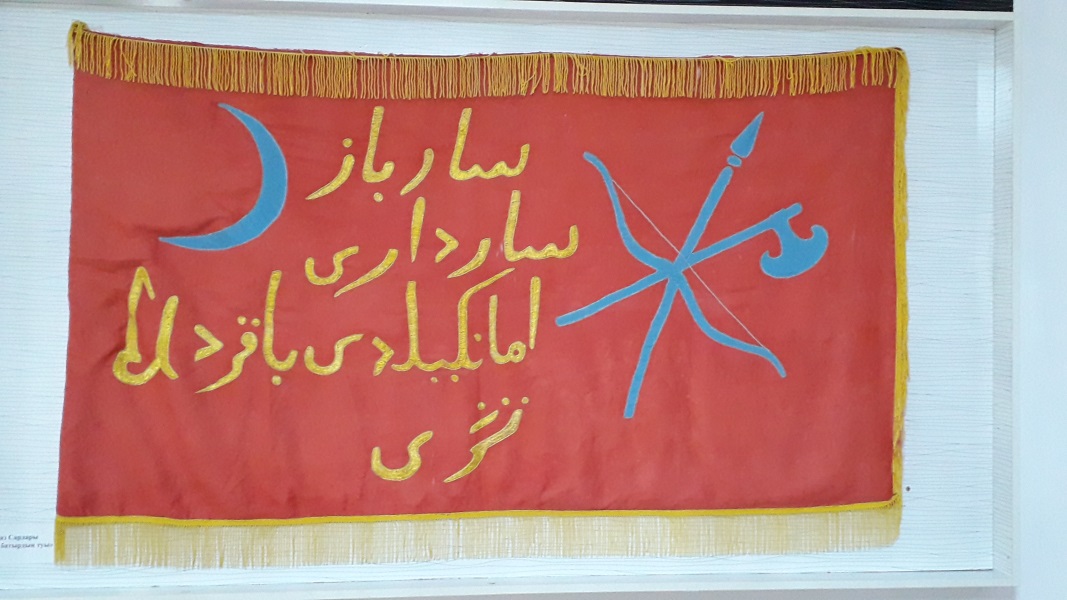 سارباز
سارداری
امانکیلدی باقرد
ی
аз Сардары
батырдын туы»